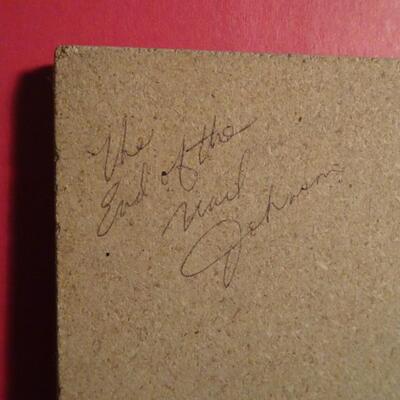 The
End of the
Trail
Johnson